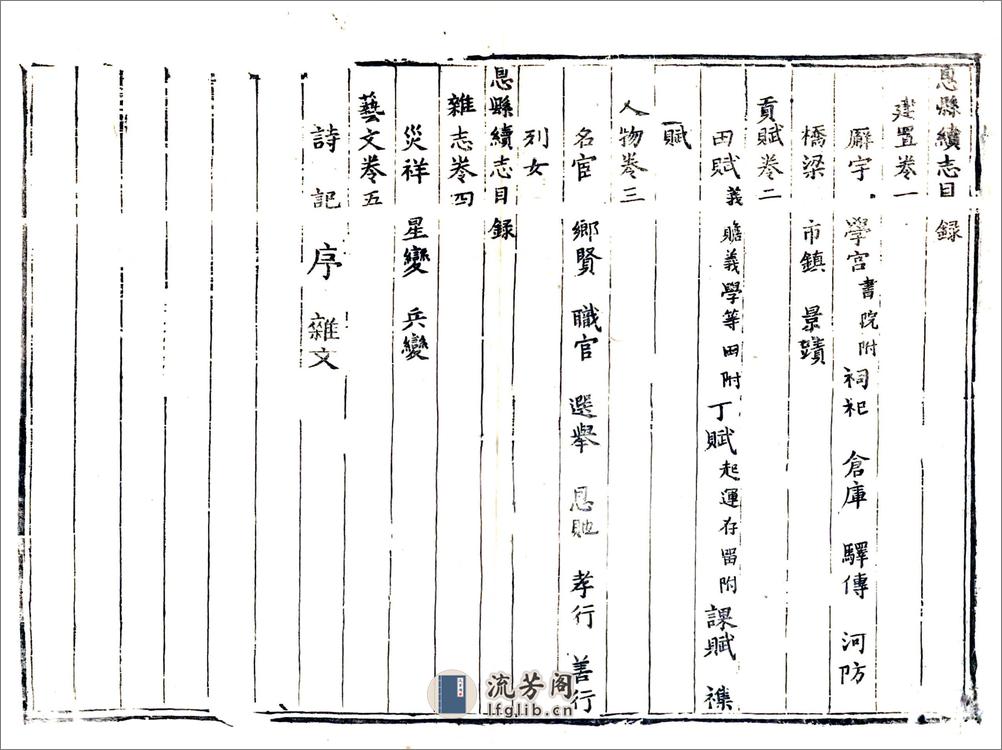 息縣續志目錄
建置卷一
廨宇 學宮書院附 祠祀 倉庫 驛傳 河防
橋梁 市鎮 景蹟
貢賦卷二
田賦義贍義學等田附 丁賦起運存留附 課賦 襍
賦
人物卷三
名宦 鄉賢 職官 選舉 恩貤 孝行 善行
列女
息縣續志目錄
雜志卷四
災祥 星變 兵變
藝文卷五
詩 記 序 雜文
流芳阁
lfglib.cn